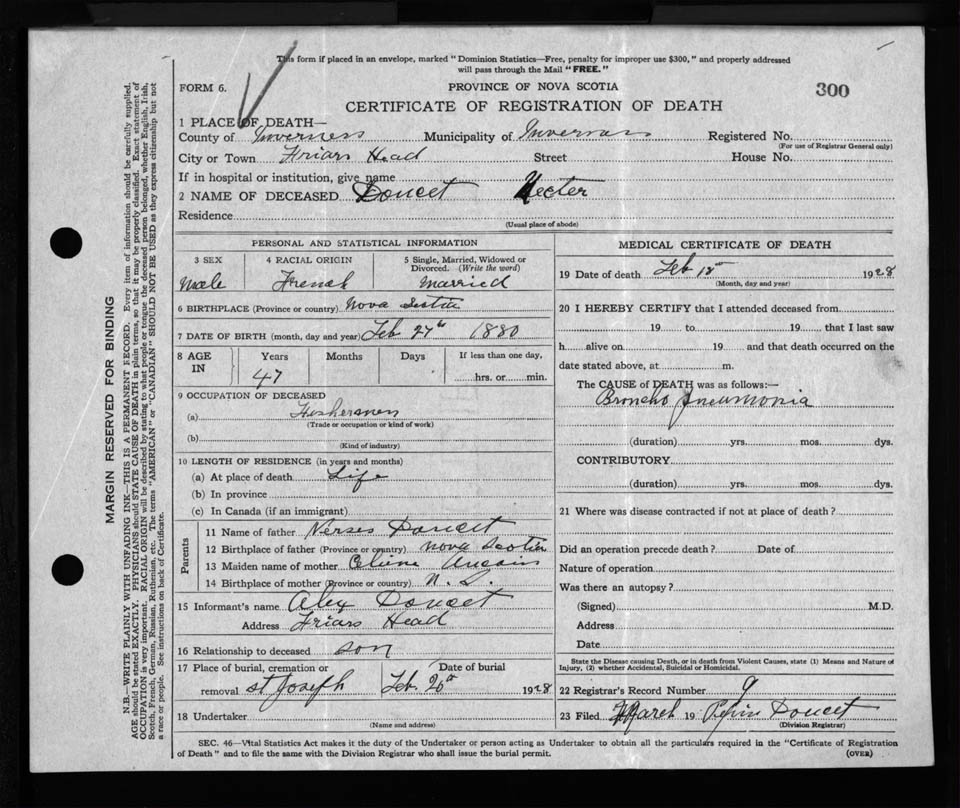 This form if placed in an envelope, marked "Dominion Statistics—Free, penalty for improper use $300," and properly addressed
will pass through the Mail "FREE."
FORM 6.
PROVINCE OF NOVA SCOTIA
300
CERTIFICATE OF REGISTRATION OF DEATH
1 PLACE OF DEATH—
County of Inverness Municipality of Inverness Registered No.
(For use of Registrar General only)
City or Town Friars Head Street House No.
If in hospital or institution, give name
2 NAME OF DECEASED Doucet Hecter
Residence
(Usual place of abode)
PERSONAL AND STATISTICAL INFORMATION
3 SEX 4 RACIAL ORIGIN 5 Single, Married, Widowed or Divorced. (Write the word)
Male French Married
6 BIRTHPLACE (Province or country) Nova Scotia
7 DATE OF BIRTH (month, day and year) Feb 27th 1880
8 AGE IN Years Months Days If less than one day,
47 hrs. or min.
9 OCCUPATION OF DECEASED
(a) Fishermen
(Trade or occupation or kind of work)
(b)
(Kind of industry)
10 LENGTH OF RESIDENCE (in years and months)
(a) At place of death Life
(b) In province
(c) In Canada (if an immigrant)
Parents
11 Name of father Doucet
12 Birthplace of father (Province or country) Nova Scotia
13 Maiden name of mother Aucoin
14 Birthplace of mother (Province or country) N. S.
15 Informant's name Alex Doucet
Address Friars Head
16 Relationship to deceased son
17 Place of burial, cremation or Date of burial
removal St Joseph Feb. 20th 1928
18 Undertaker
(Name and address)
MEDICAL CERTIFICATE OF DEATH
19 Date of death Feb 18 1928
(Month, day and year)
20 I HEREBY CERTIFY that I attended deceased from
19 to 19 that I last saw
h alive on 19 and that death occurred on the
date stated above, at m.
The CAUSE of DEATH was as follows:—
Broncho pneumonia
(duration) yrs. mos. dys.
CONTRIBUTORY
(duration) yrs. mos. dys.
21 Where was disease contracted if not at place of death?
Did an operation precede death? Date of
Nature of operation
Was there an autopsy?
(Signed) M.D.
Address
Date
State the Disease causing Death, or in death from Violent Causes, state (1) Means and Nature of
Injury, (2) whether Accidental, Suicidal or Homicidal.
22 Registrar's Record Number 9
23 Filed March 19 Doucet
(Division Registrar)
SEC. 46—Vital Statistics Act makes it the duty of the Undertaker or person acting as Undertaker to obtain all the particulars required in the "Certificate of Registration
of Death" and to file the same with the Division Registrar who shall issue the burial permit. (OVER)
MARGIN RESERVED FOR BINDING
N.B.—WRITE PLAINLY WITH UNFADING INK—THIS IS A PERMANENT RECORD. Every item of information should be carefully supplied.
AGE should be stated EXACTLY. PHYSICIANS should STATE CAUSE OF DEATH in plain terms, so that it may be properly classified. Exact statement of
OCCUPATION is very important. RACIAL ORIGIN will be described by stating to what people or tongue the deceased person belonged, whether English, Irish,
Scotch, French, German, Russian, Ruthenian, etc. The terms "AMERICAN" or "CANADIAN" SHOULD NOT BE USED as they express citizenship but not
a race or people. See instructions on back of Certificate.